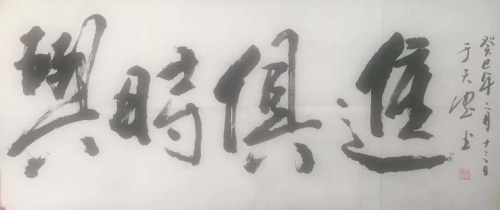 與時俱進
癸巳年 月十 日
于天 书